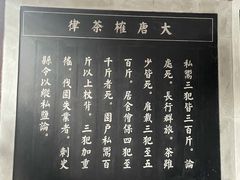 大唐榷茶律
私鬻三犯皆三百斤,論
處死。長行群旅,茶雖
少皆死。雇載三犯至五
百斤、居舍儈保四犯至
千斤者死。園戶私鬻百
斤以上杖背。三犯加重
徭。伐園失業者,刺史
縣令以縱私鹽論。